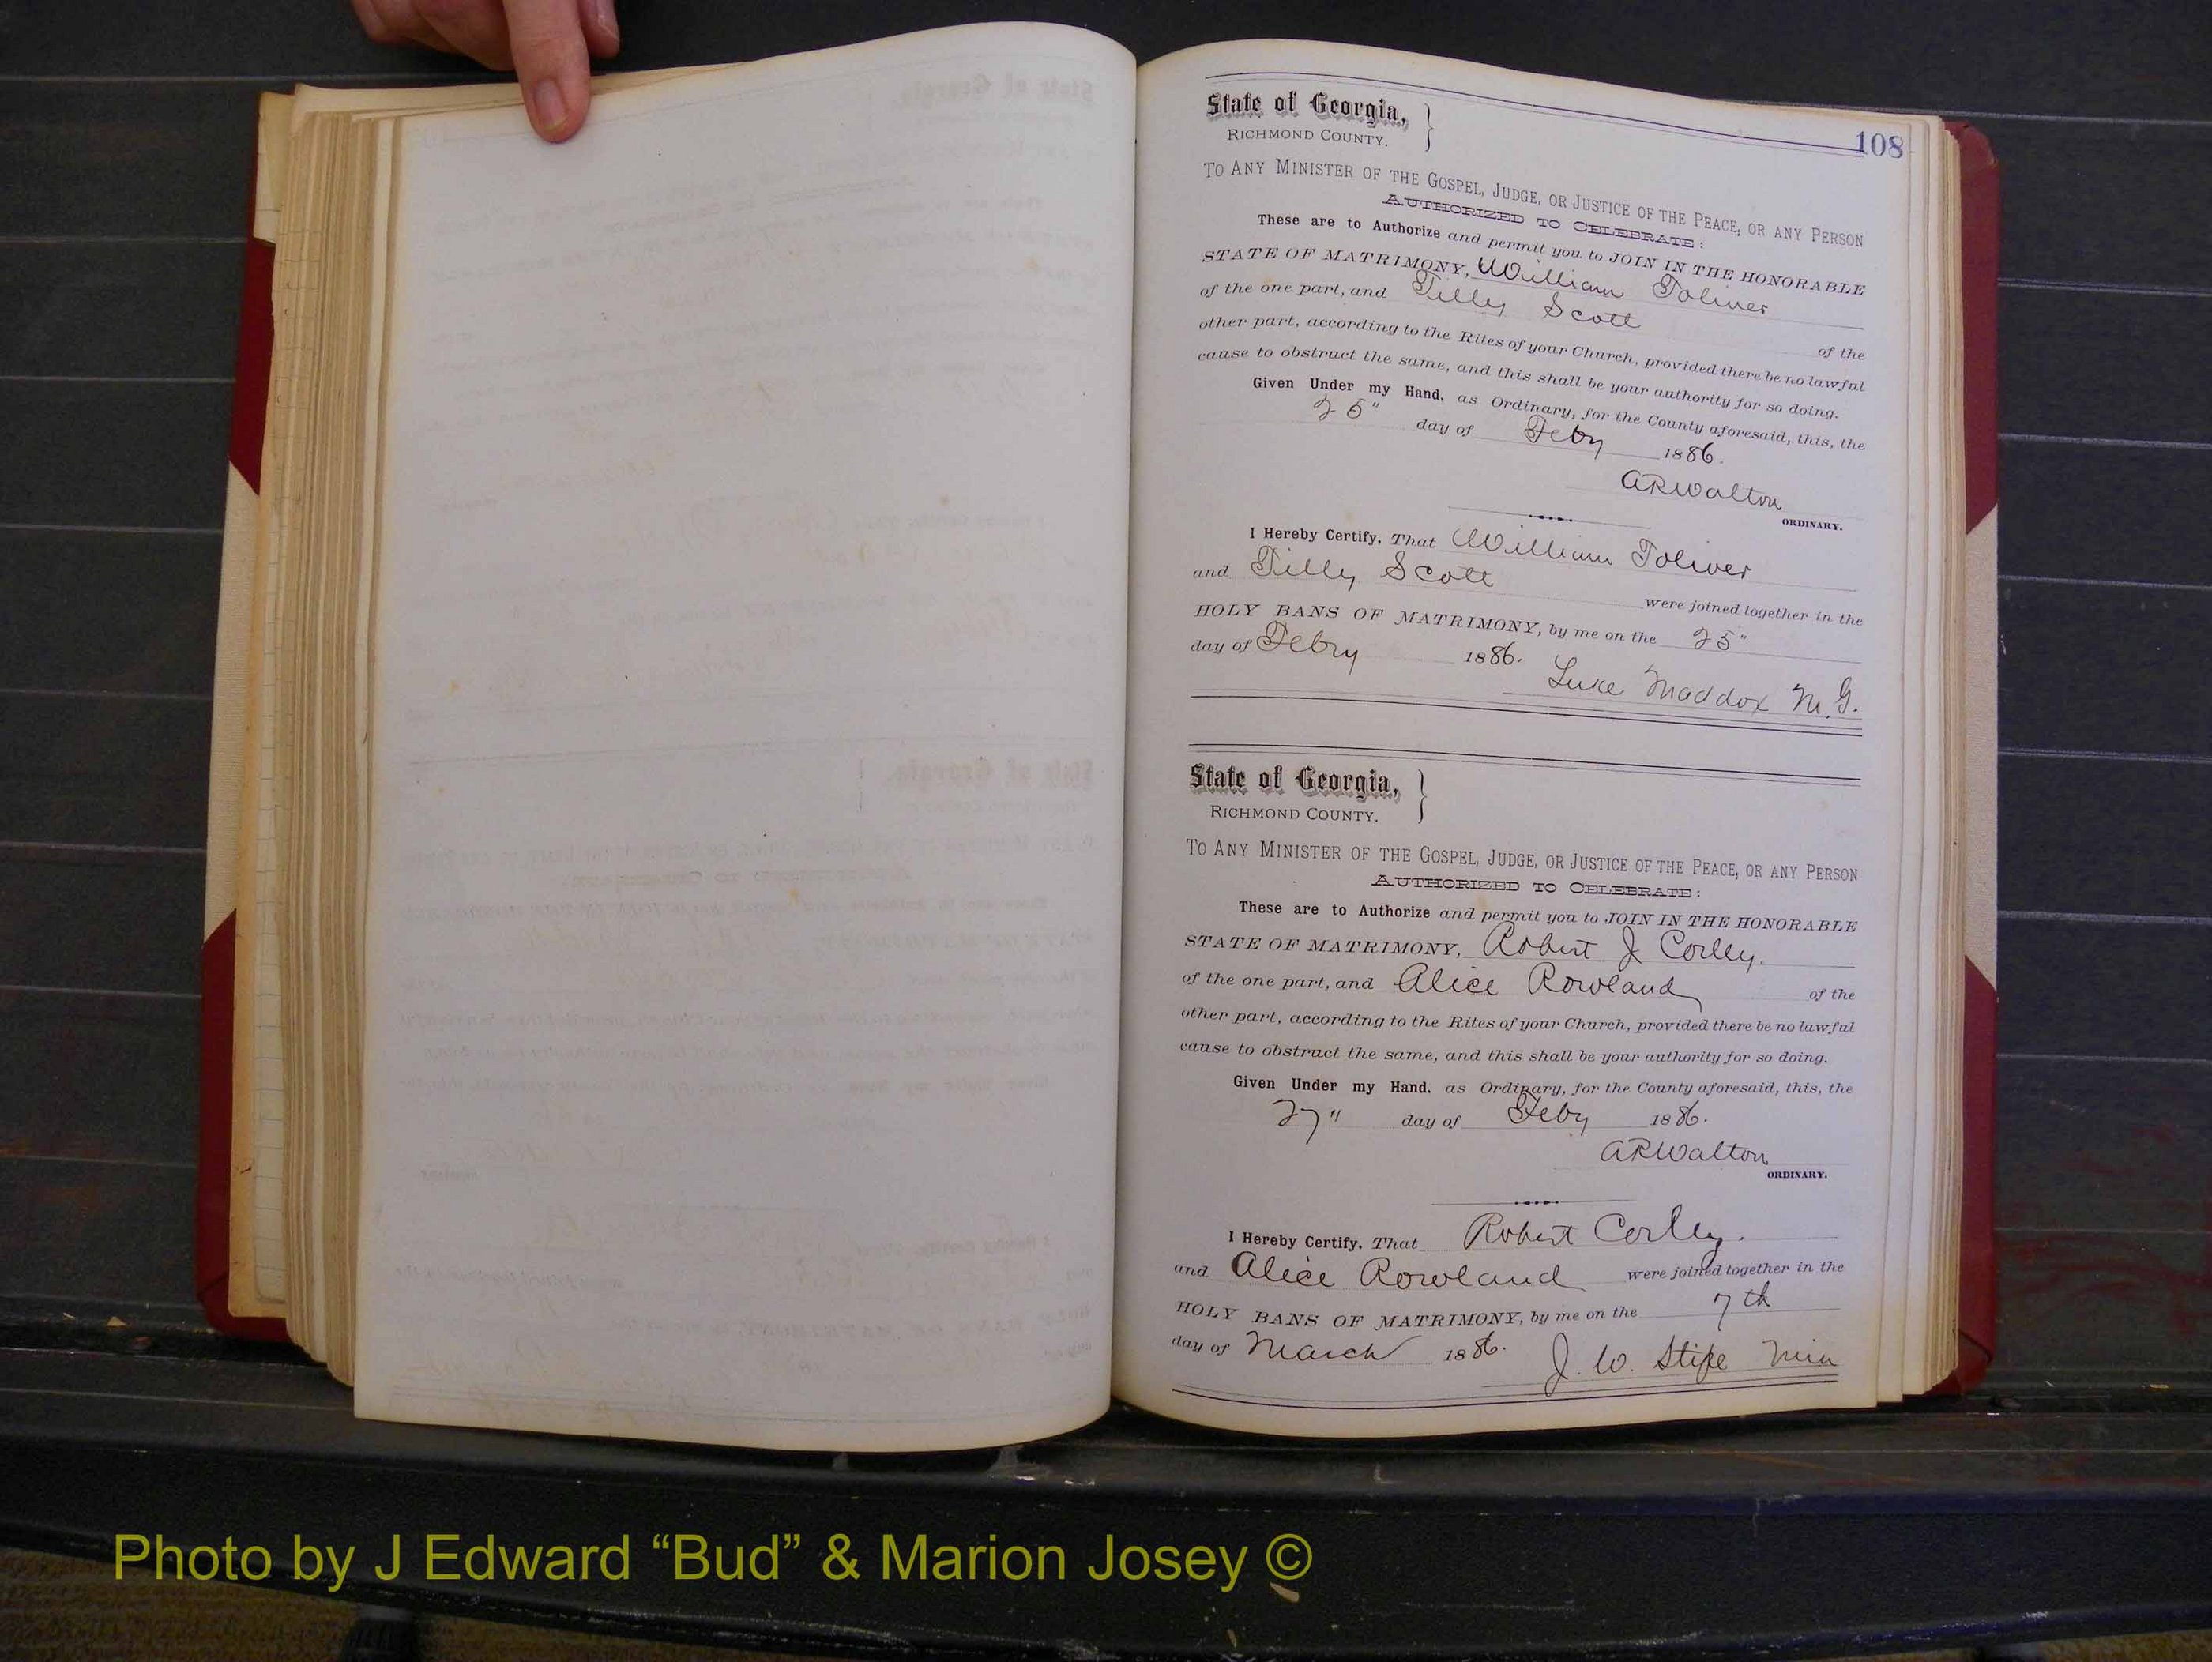 108
State of Georgia,
RICHMOND COUNTY.
TO ANY MINISTER OF THE GOSPEL, JUDGE, OR JUSTICE OF THE PEACE, OR ANY PERSON
AUTHORIZED TO CELEBRATE:
These are to Authorize and permit you to JOIN IN THE HONORABLE
STATE OF MATRIMONY, William Toliver
of the one part, and Tilly Scott of the
other part, according to the Rites of your Church, provided there be no lawful
cause to obstruct the same, and this shall be your authority for so doing.
Given Under my Hand, as Ordinary, for the County aforesaid, this, the
25" day of Feby 1886.
ARWalton
ORDINARY.
I Hereby Certify, That William Toliver
and Tilly Scott were joined together in the
HOLY BANS OF MATRIMONY, by me on the 25"
day of Febry 1886. Luke Maddox M.G.
State of Georgia,
RICHMOND COUNTY.
TO ANY MINISTER OF THE GOSPEL, JUDGE, OR JUSTICE OF THE PEACE, OR ANY PERSON
AUTHORIZED TO CELEBRATE:
These are to Authorize and permit you to JOIN IN THE HONORABLE
STATE OF MATRIMONY, Robert J Corley.
of the one part, and Alice Rowland of the
other part, according to the Rites of your Church, provided there be no lawful
cause to obstruct the same, and this shall be your authority for so doing.
Given Under my Hand, as Ordinary, for the County aforesaid, this, the
27" day of Feby 1886.
ARWalton
ORDINARY.
I Hereby Certify, That Robert Corley.
and Alice Rowland were joined together in the
HOLY BANS OF MATRIMONY, by me on the 7th
day of March 1886. J. W. Stipe Min
Photo by J Edward “Bud” & Marion Josey ©